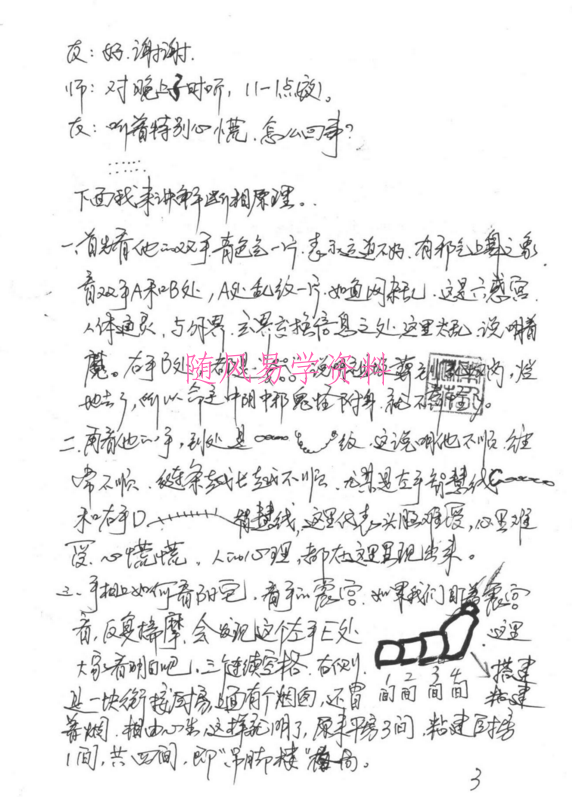 友：好.谢谢.
师：对晚上子时听，11-1点敲。
友：听着特别心慌.怎么回事？
......
下面我来讲解断相原理。.
一.首先看他的双手.青色全一片.表示运道不好.有邪气上身之象
看双手A和B处，A处乱纹一片.如鱼网杂乱.这是六感宫
人体通灵、与外界.玄界交换信息之处.这里太乱，说明着
魔。右手B处
随风易学资料
地去了，所以命主中阴中邪鬼怪附身.就不
二.再看他的手，到处是 纹.这说明他不顺.经
常不顺.链条越长越不顺.尤其是左手智慧线
和右手D 智慧线，这里代表头脑难受，心里难
受.心慌慌.人的心理，都在这里呈现出来。
三.手相上如何看阳宅.看手的震宫.如果我们盯着震宫
看，反复揣摩，会发现这个左手E处.这里
大家看明白吧.三个连续空格.右侧 1间 2间 3间 4间 搭建 粘建
是一块衔接厨房，上面有个烟囱，还冒
着烟.相由心生，这样就明了，原来平房3间，粘建厨房
1间，共四间，即"吊脚楼"格局。
3